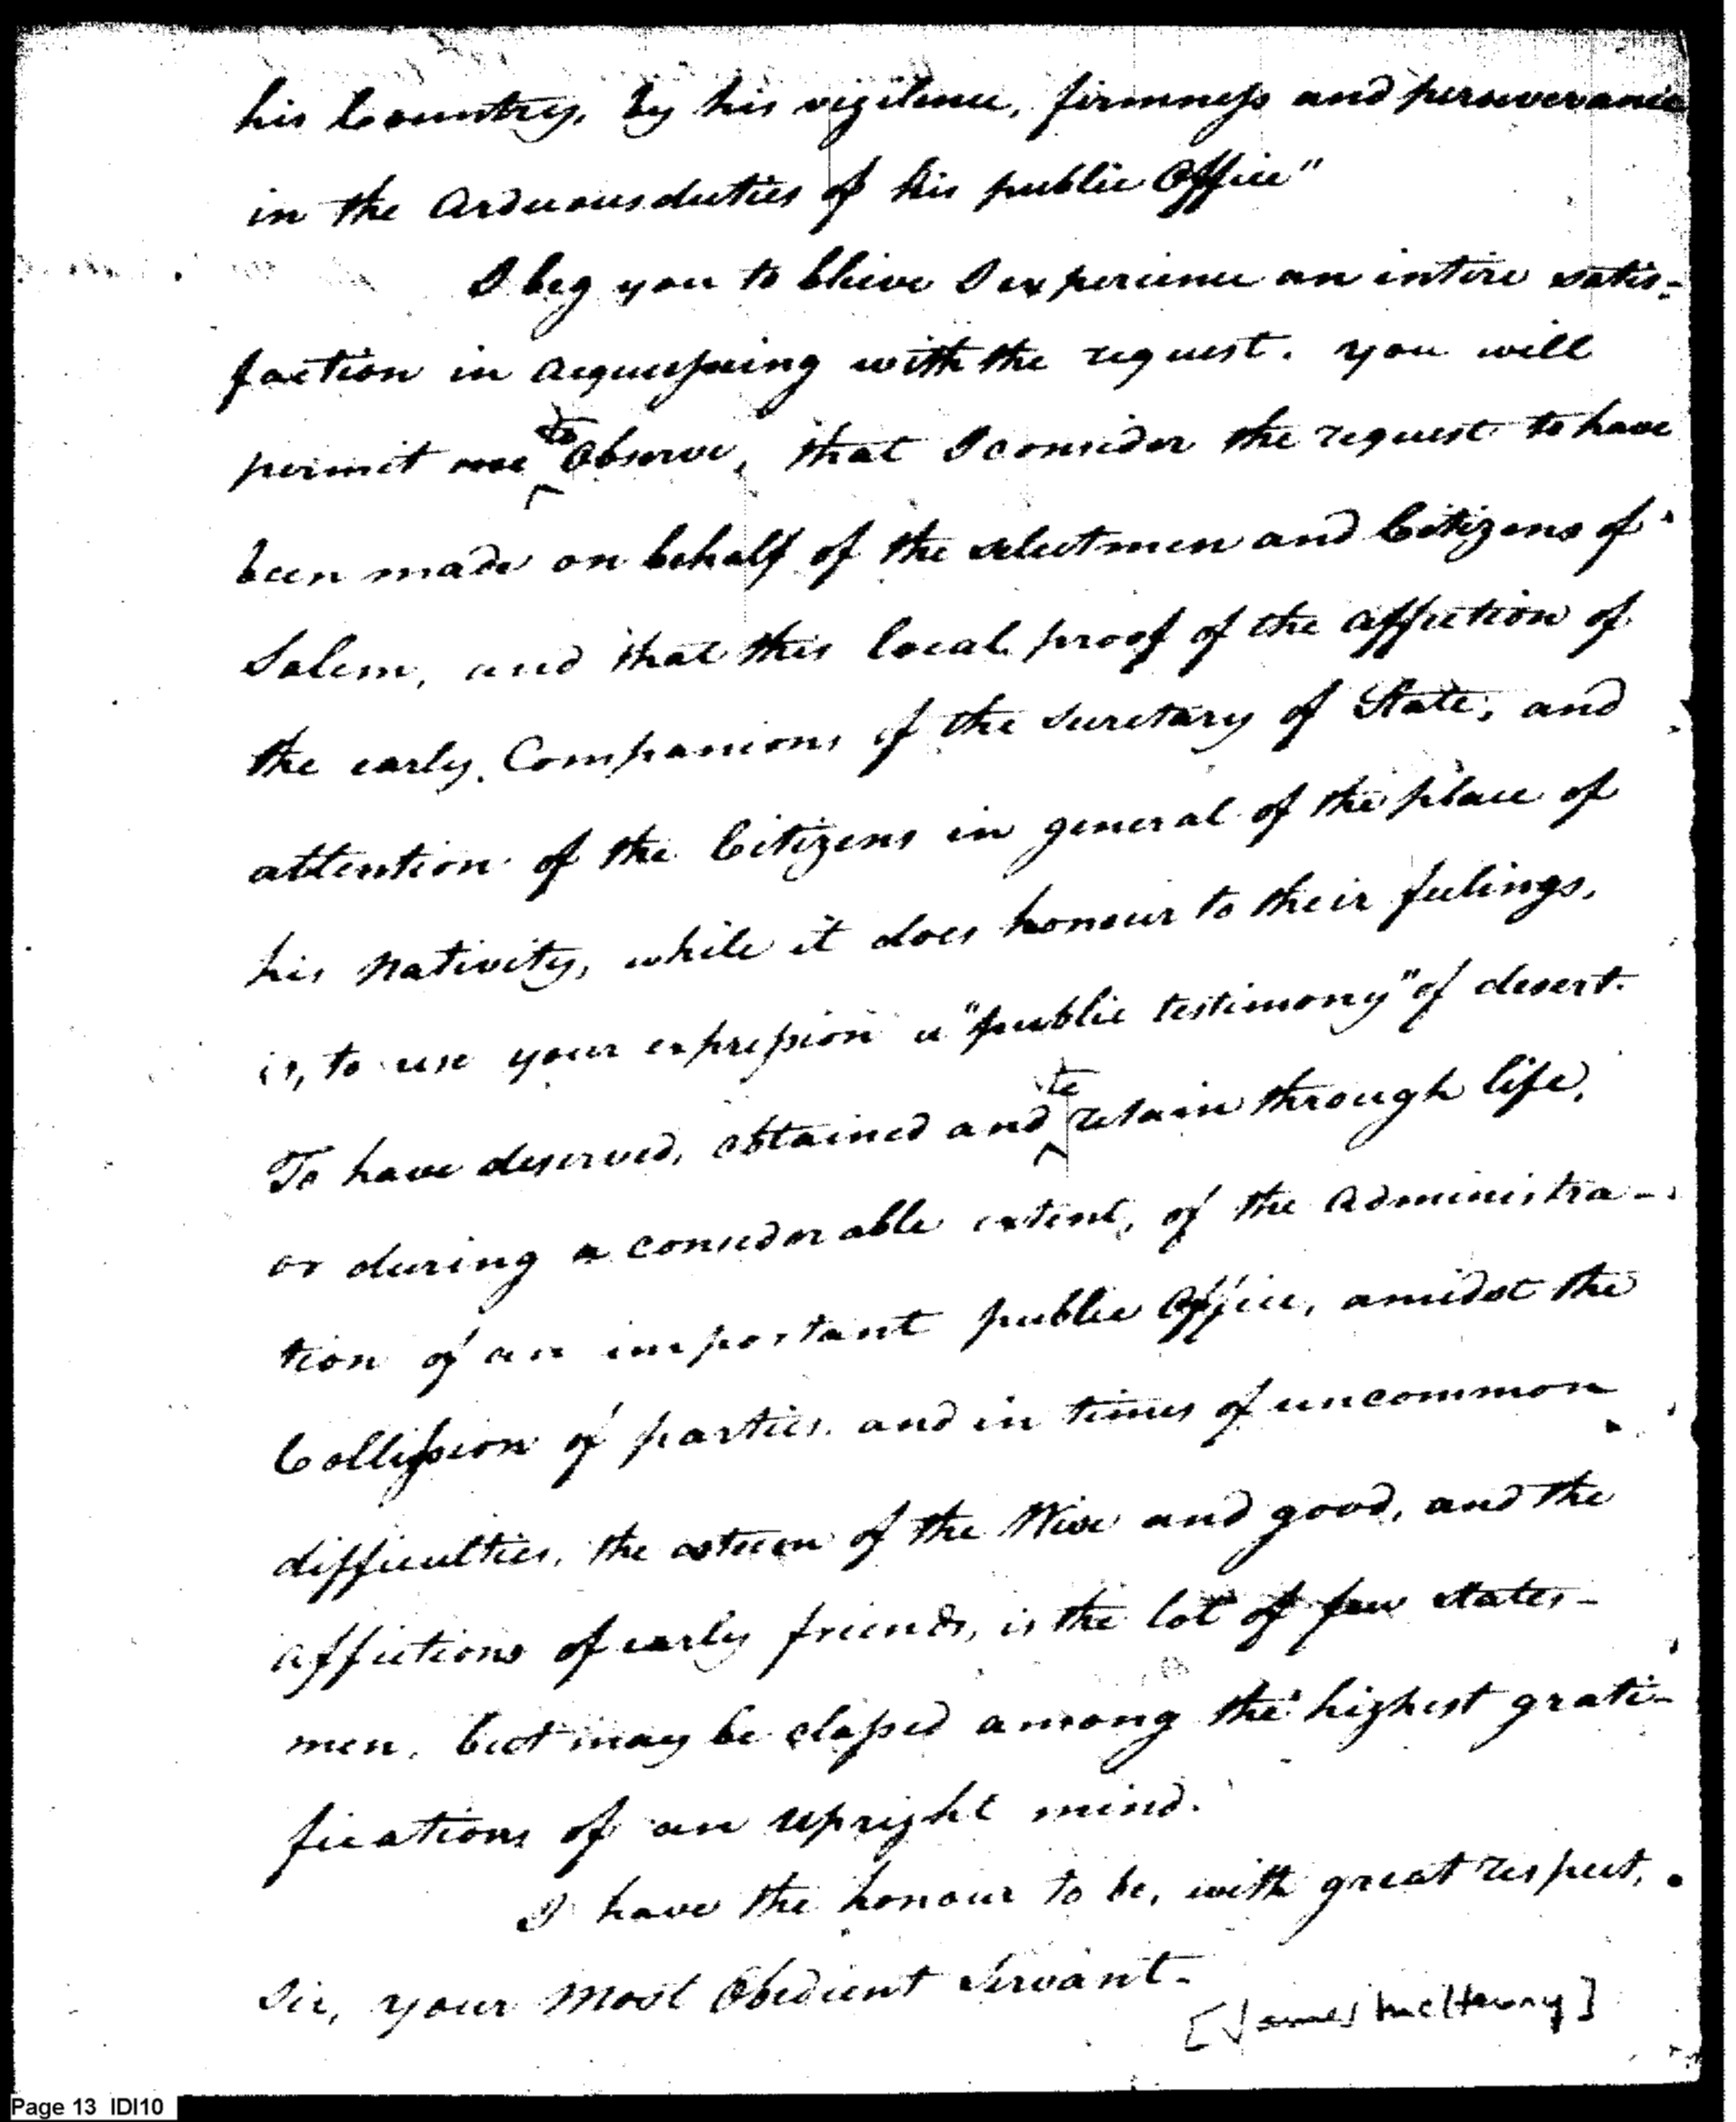 his Country, by his vigilence, firmness and perseverance
in the arduous duties of his public Office"
I beg you to blieve I experience an intire satis-
faction in acquiessing with the request. you will
permit me to observe, that I consider the request to have
been made on behalf of the selectmen and Citizens of
Salem, and that this local proof of the affection of
the early Companions of the Secretary of State, and
attention of the Citizens in general of the place of
his Nativity, while it does honour to their feelings,
is, to use your expression a "public testimony" of desert.
To have deserved, obtained and to retain through life,
or during a considerable extent, of the administra-
tion of an important public Office, amidst the
Collission of parties. and in times of uncommon
difficulties, the esteem of the Wise and good, and the
affections of early friends, is the lot of few states-
men, but may be classed among the highest grati-
fications of an upright mind.
I have the honour to be, with great respect,
Sir, your most Obedient Servant.
[James McHenry]
Page 13 IDI10